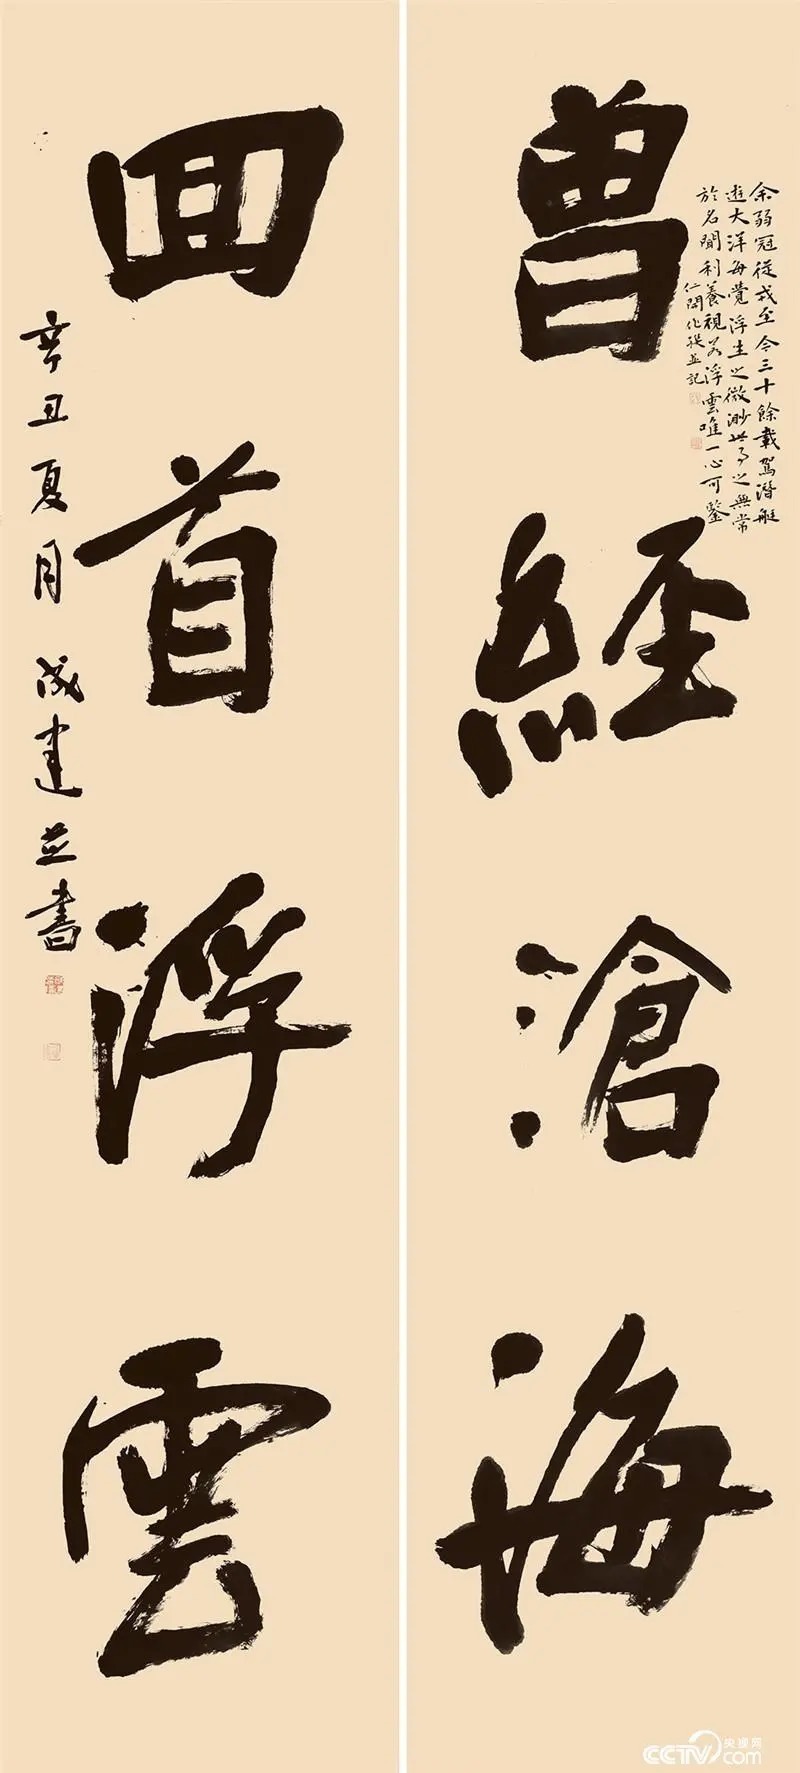 曾經滄海
余弱冠從戎至今三十餘載駕潛艇
遊大洋每覺浮生之微渺世事之無常
於名聞利養視若浮雲唯一心可鑒
並記
囬首浮雲
辛丑夏月 成建並書
央视网
CCTV.com